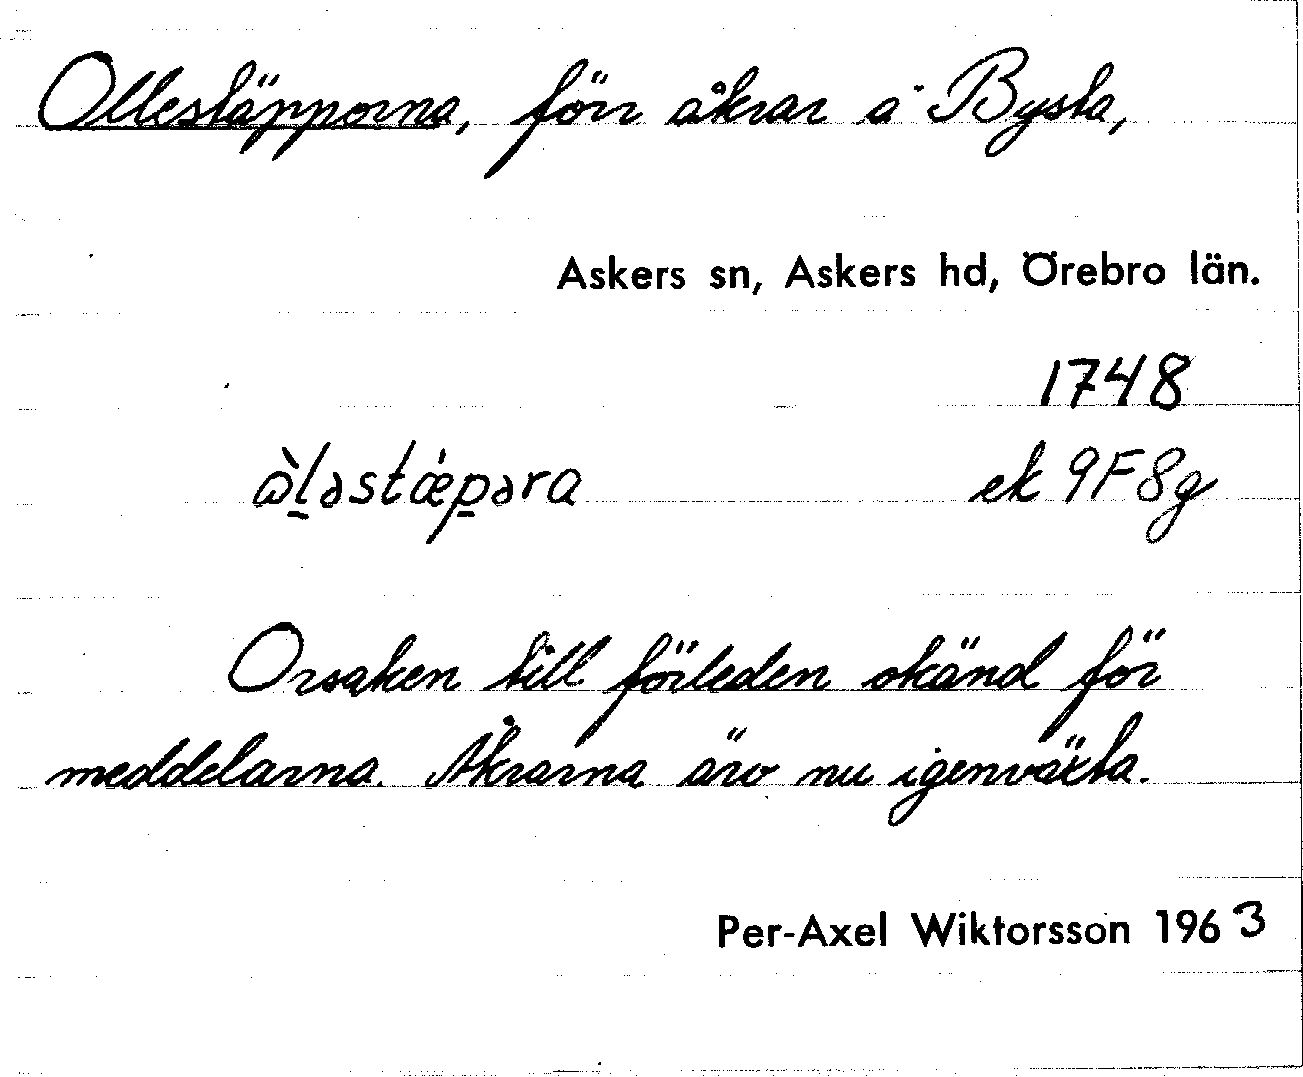 Ollestäpporna, förr åkrar å Bysta,
Askers sn, Askers hd, Örebro län.
1748
ὼl̠əstǽp̠əra ek 9F8g
Orsaken till förleden okänd för
meddelarna. Åkrarna äro nu igenväxta.
Per-Axel Wiktorsson 1963